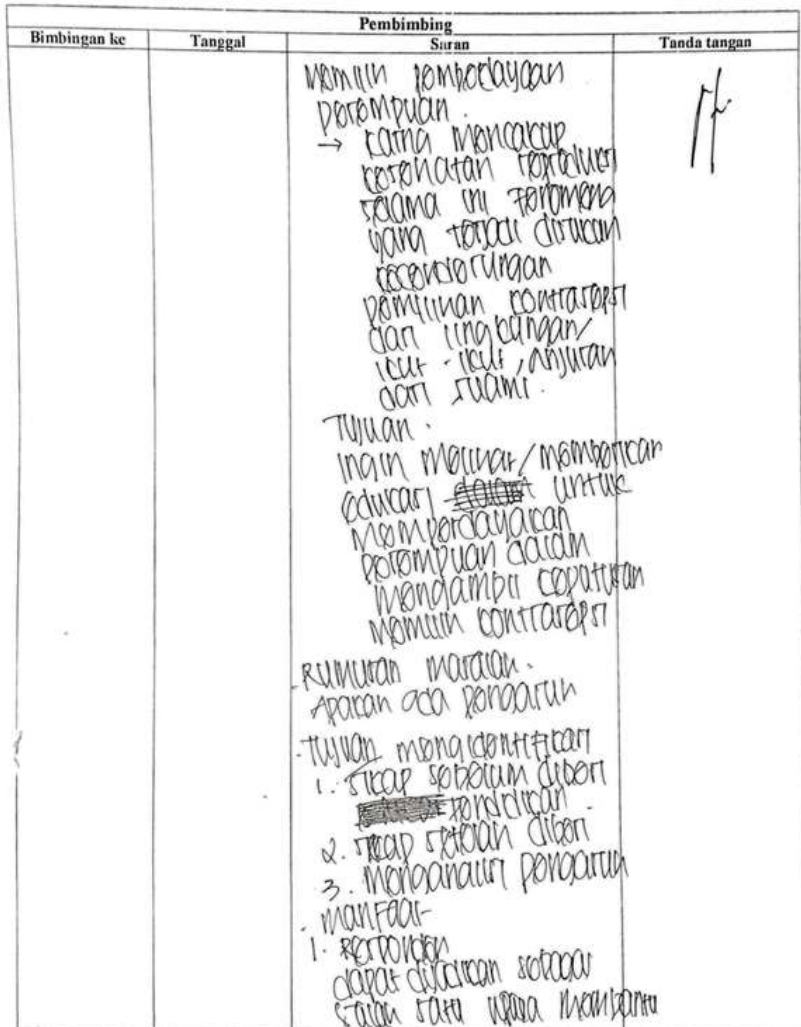 Pembimbing
Bimbingan ke Tanggal Saran Tanda tangan
Memilih pemberdayaan
perempuan.
→ karna mencakup
kesehatan reproduksi
selama ini Fenomena
yang terjadi disukan
kecenderungan
pemilihan kontrasepsi
dari lingkungan/
ikut-ikut, Anjuran
dari suami.
Tujuan.
ingin melihat/memberikan
edukasi untuk
memperdayakan
perempuan dalam
mengambil keputusan
Memilih kontrasepsi
- Rumusan masalah.
Apakah ada pengaruh
- Tujuan mengidentifikasi
1. sikap sebelum diberi
pendidikan.
2. sikap setelah diberi.
3. Menganalisi pengaruh
. manFaat
1. Responden
dapat dijadikan sebagai
salah satu upaya membantu